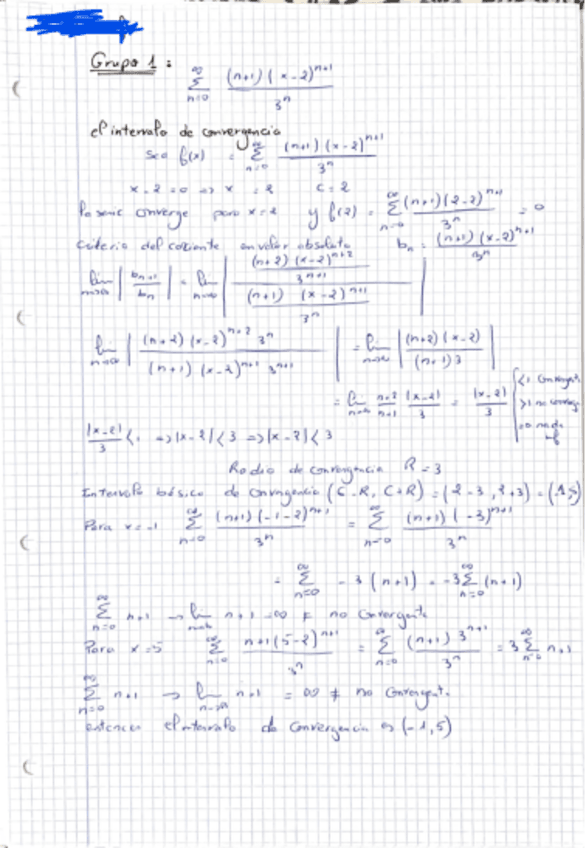 Grupo 1 : \sum_{n=0}^{\infty} \frac{(n+1)(x-2)^{n+1}}{3^n}
el intervalo de convergencia
sea f(x) = \sum_{n=0}^{\infty} \frac{(n+1)(x-2)^{n+1}}{3^n}
x-2=0 => x=2 C=2
la serie converge para x=2 y f(2) = \sum_{n=0}^{\infty} \frac{(n+1)(2-2)^{n+1}}{3^n} = 0
criterio del cociente en valor absoluto b_n = \frac{(n+1)(x-2)^{n+1}}{3^n}
\lim_{n→∞} |\frac{b_{n+1}}{b_n}| = \lim_{n→∞} |\frac{\frac{(n+2)(x-2)^{n+2}}{3^{n+1}}}{\frac{(n+1)(x-2)^{n+1}}{3^n}}|
\lim_{n→∞} |\frac{(n+2)(x-2)^{n+2} 3^n}{(n+1)(x-2)^{n+1} 3^{n+1}}| = \lim_{n→∞} |\frac{(n+2)(x-2)}{(n+1)3}|
= \lim_{n→∞} \frac{n+2}{n+1} \frac{|x-2|}{3} = \frac{|x-2|}{3} { <1 convergente
>1 no converge
\frac{|x-2|}{3} <1 => |x-2| < 3 => |x-2| < 3
Radio de convergencia R=3
Intervalo básico de convergencia (C-R, C+R) = (2-3, 2+3) = (-1,5)
Para x=-1 \sum_{n=0}^{\infty} \frac{(n+1)(-1-2)^{n+1}}{3^n} = \sum_{n=0}^{\infty} \frac{(n+1)(-3)^{n+1}}{3^n}
= \sum_{n=0}^{\infty} -3(n+1) = -3\sum_{n=0}^{\infty} (n+1)
\sum_{n=0}^{\infty} n+1 → \lim_{n→∞} n+1 = ∞ ≠ no convergente
Para x=5 \sum_{n=0}^{\infty} \frac{n+1(5-2)^{n+1}}{3^n} = \sum_{n=0}^{\infty} \frac{(n+1) 3^{n+1}}{3^n} = 3\sum_{n=0}^{\infty} n+1
\sum_{n=0}^{\infty} n+1 → \lim_{n→∞} n+1 = ∞ ≠ no convergent.
entonces el intervalo de convergencia es (-1,5)